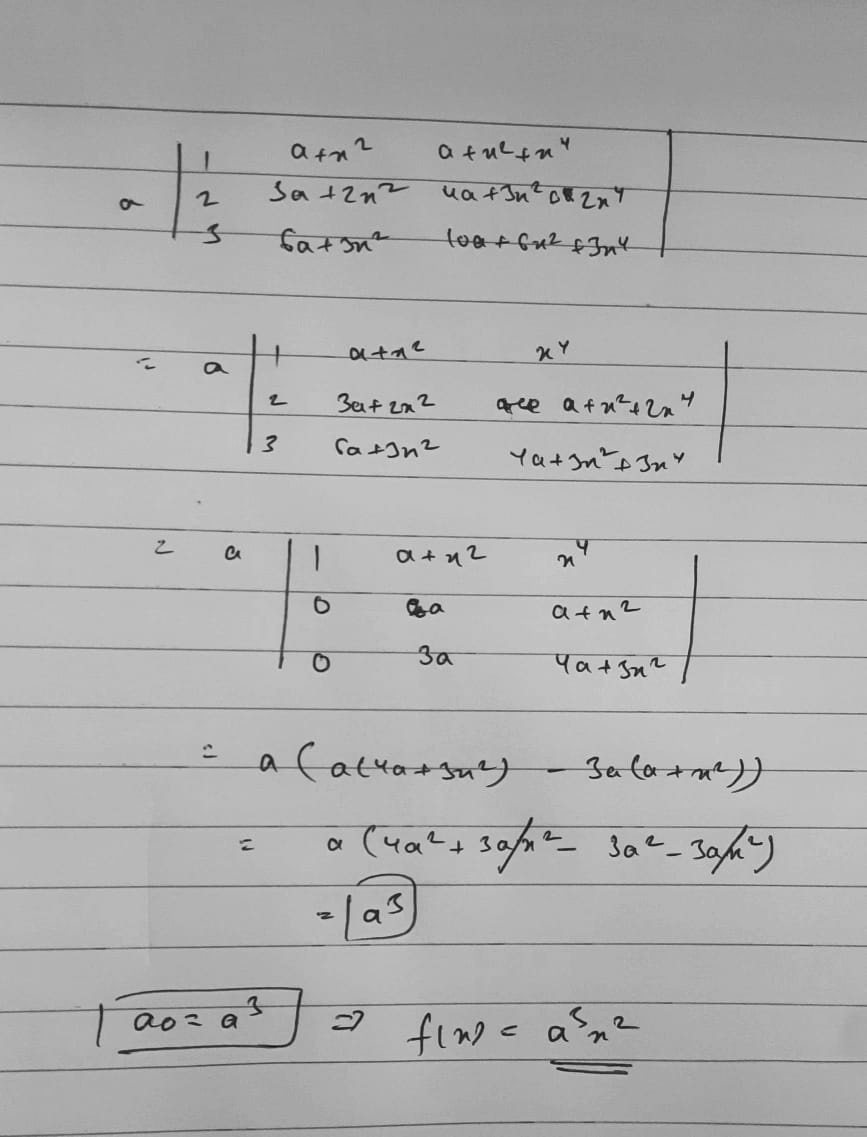 1 a+x² a+x²+x⁴
a 2 3a+2x² 4a+3x² 2x⁴
3 6a+3x² 10a+6x²+3x⁴
= a 1 a+x² x⁴
2 3a+2x² a+x²+2x⁴
3 6a+3x² 4a+3x²+3x⁴
= a 1 a+x² x⁴
0 a a+x²
0 3a 4a+3x²
= a(a(4a+3x²) - 3a(a+x²))
= a(4a²+3ax² - 3a²-3ax²)
= a³
a0 = a³ ⇒ f(x) = a³x²